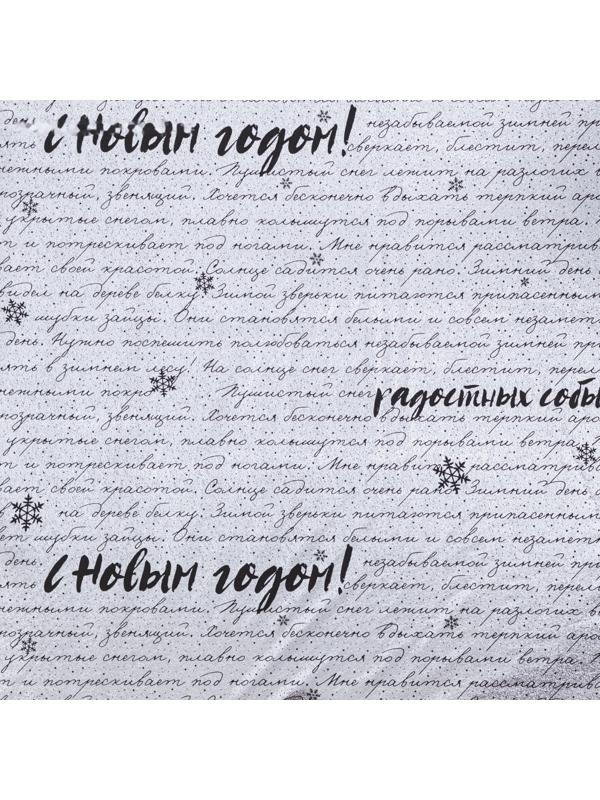 день.
С Новым годом!
незабываемой зимней пр
ять
сверкает, блестит, перел
нежными покровами. Пушистый снег лежит на разлогих в
прозрачный, звенящий. Хочется бесконечно вдыхать терпкий аро
укрытые снегом, плавно колышутся под порывами ветра.
т и потрескивает под ногами. Мне нравится рассматрив
вает своей красотой. Солнце садится очень рано. Зимний день
видел на дереве белку. Зимой зверьки питаются припасенным
шубки зайцы. Они становятся белыми и совсем незамет
день. Нужно поспешить полюбоваться незабываемой зимней пр
ять в зимнем лесу! На солнце снег сверкает, блестит, перел
нежными покро
Пушистый снег
радостных собы
прозрачный, звенящий. Хочется бесконечно вдыхать терпкий аро
укрытые снегом, плавно колышутся под порывами ветра.
т и потрескивает под ногами. Мне нравит
рассматрив
вает своей красотой. Солнце садится очень рано
Зимний день
на дереве белку. Зимой зверьки питаются припасенным
шубки зайцы. Они становятся белыми и совсем незамет
день.
С Новым годом!
незабываемой зимней пр
ять
сверкает, блестит, перел
нежными покровами. Пушистый снег лежит на разлогих в
прозрачный, звенящий. Хочется бесконечно вдыхать терпкий аро
укрытые снегом, плавно колышутся под порывами ветра.
т и потрескивает под ногами. Мне нравится рассматрива